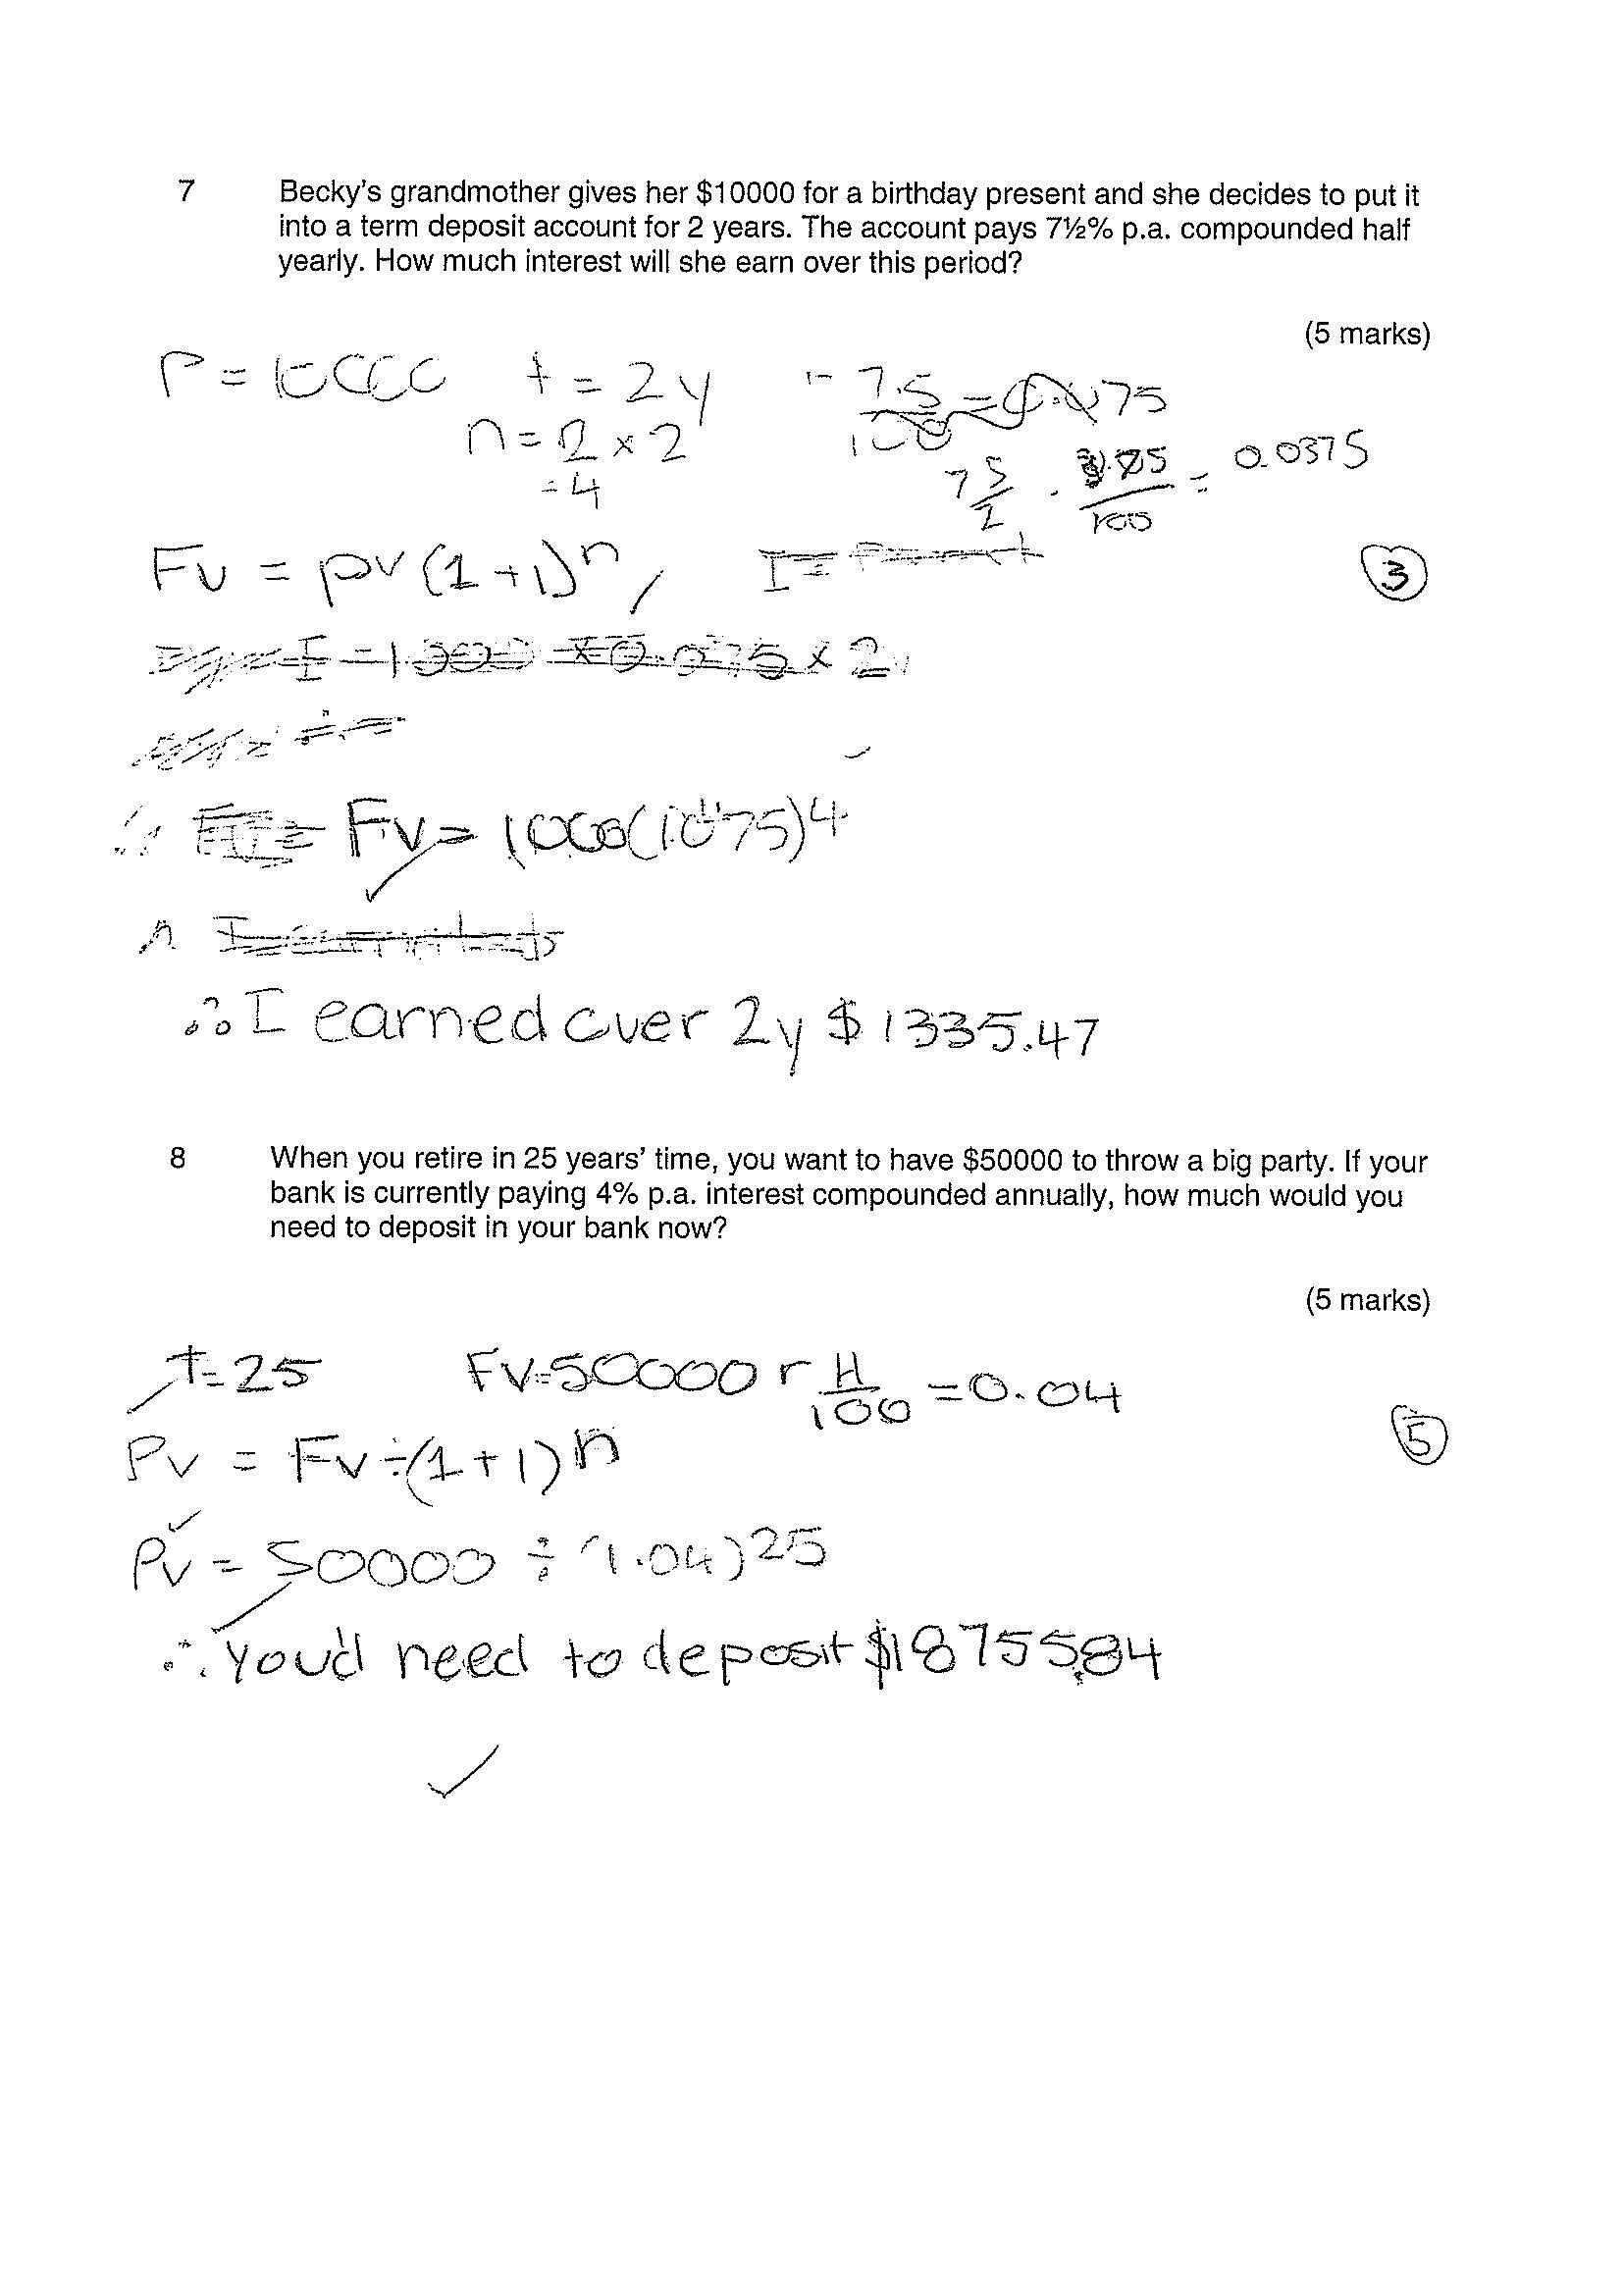 7 Becky's grandmother gives her $10000 for a birthday present and she decides to put it
into a term deposit account for 2 years. The account pays 7½% p.a. compounded half
yearly. How much interest will she earn over this period?
(5 marks)
P = 10000 t = 2y r 7.5/100 = 0.075
n = 2 × 2 7.5/2 = 3.75/100 = 0.0375
= 4
Fv = pv(1+i)^n
3
I = 1000 × 0.075 × 2
∴ Fv = 1000(1.075)^4
∴ I earned over 2y $1335.47
8 When you retire in 25 years' time, you want to have $50000 to throw a big party. If your
bank is currently paying 4% p.a. interest compounded annually, how much would you
need to deposit in your bank now?
(5 marks)
t = 25 Fv = 50000 r 4/100 = 0.04
5
Pv = Fv ÷ (1 + i)^n
Pv = 50000 ÷ (1.04)^25
∴ you'd need to deposit $18755.84